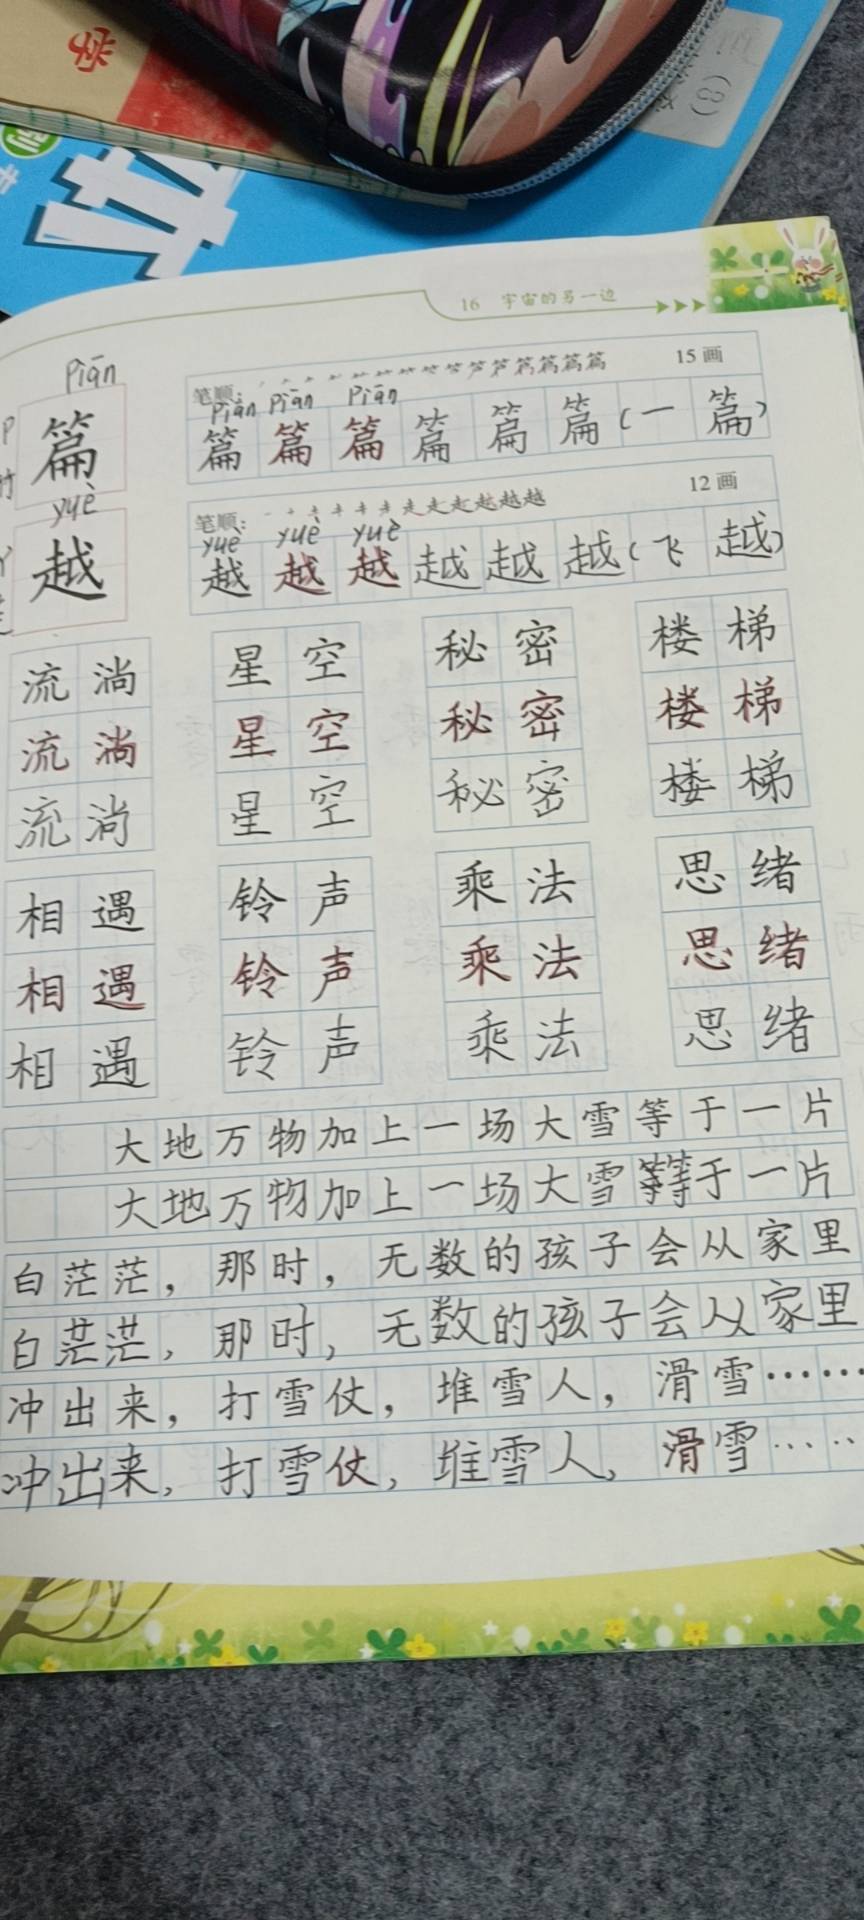 学
(8)
16 宇宙的另一边
piān
篇
笔顺： 篇篇篇篇 15画
piān piān piān
篇 篇 篇 篇 篇 篇（一 篇）
yuè
越
笔顺： 走走走越越越 12画
yuè yuè yuè
越 越 越 越 越 越（飞 越）
流淌 星空 秘密 楼梯
流淌 星空 秘密 楼梯
流淌 星空 秘密 楼梯
相遇 铃声 乘法 思绪
相遇 铃声 乘法 思绪
相遇 铃声 乘法 思绪
大地万物加上一场大雪等于一片
大地万物加上一场大雪等等于一片
白茫茫，那时，无数的孩子会从家里
白茫茫，那时，无数的孩子会从家里
冲出来，打雪仗，堆雪人，滑雪……
冲出来，打雪仗，堆雪人，滑雪……